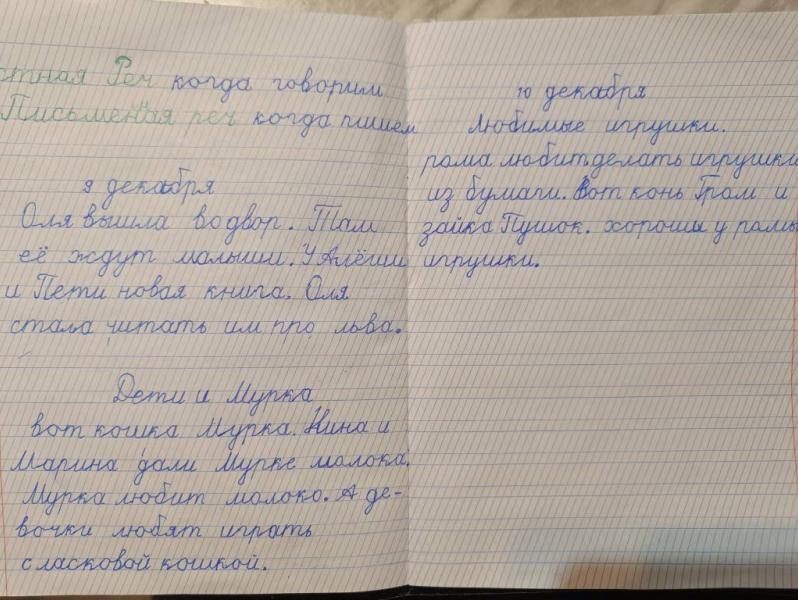 стная Реч когда говорим
Письменая реч когда пишем
9 декабря
Оля вышла во двор. Там
её ждут малыши. У Алёши
и Пети новая книга. Оля
стала читать им про льва.
Дети и Мурка
вот кошка Мурка. Нина и
Марина дали Мурке молока.
Мурка любит молоко. А де-
вочки любят играть
с ласковой кошкой.
10 декабря
Любимые игрушки.
рома любит делать игрушки
из бумаги. Вот конь Гром и
зайка Пушок. хороши у ромы
игрушки.